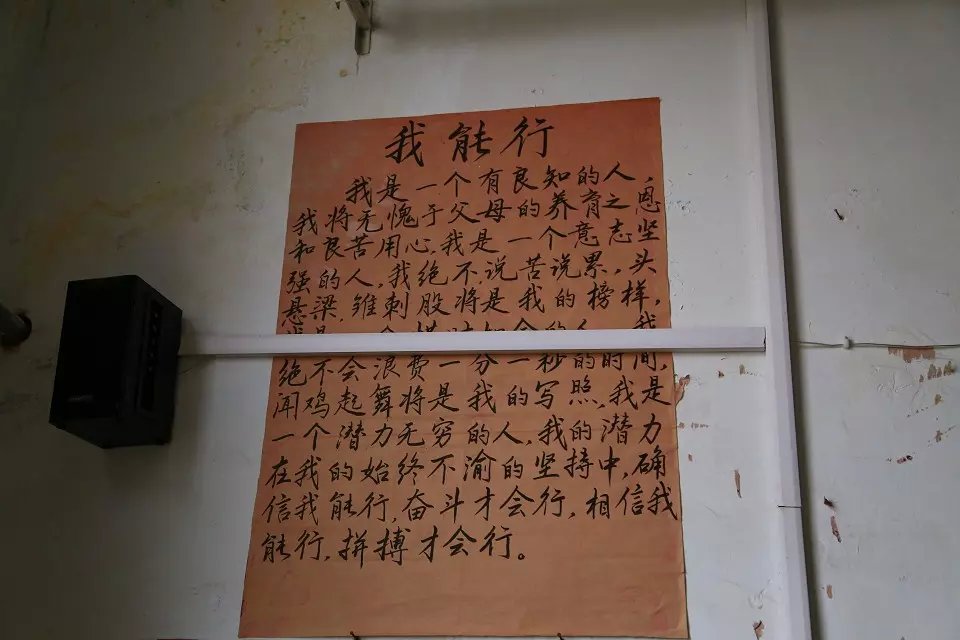 我能行
我是一个有良知的人,
我将无愧于父母的养育之恩
和良苦用心,我是一个意志坚
强的人,我绝不说苦说累,头
悬梁,锥刺股将是我的榜样,
我是一个惜时如金的人,我
绝不会浪费一分一秒的时间,
闻鸡起舞将是我的写照,我是
一个潜力无穷的人,我的潜力
在我的始终不渝的坚持中,确
信我能行,奋斗才会行,相信我
能行,拼搏才会行。